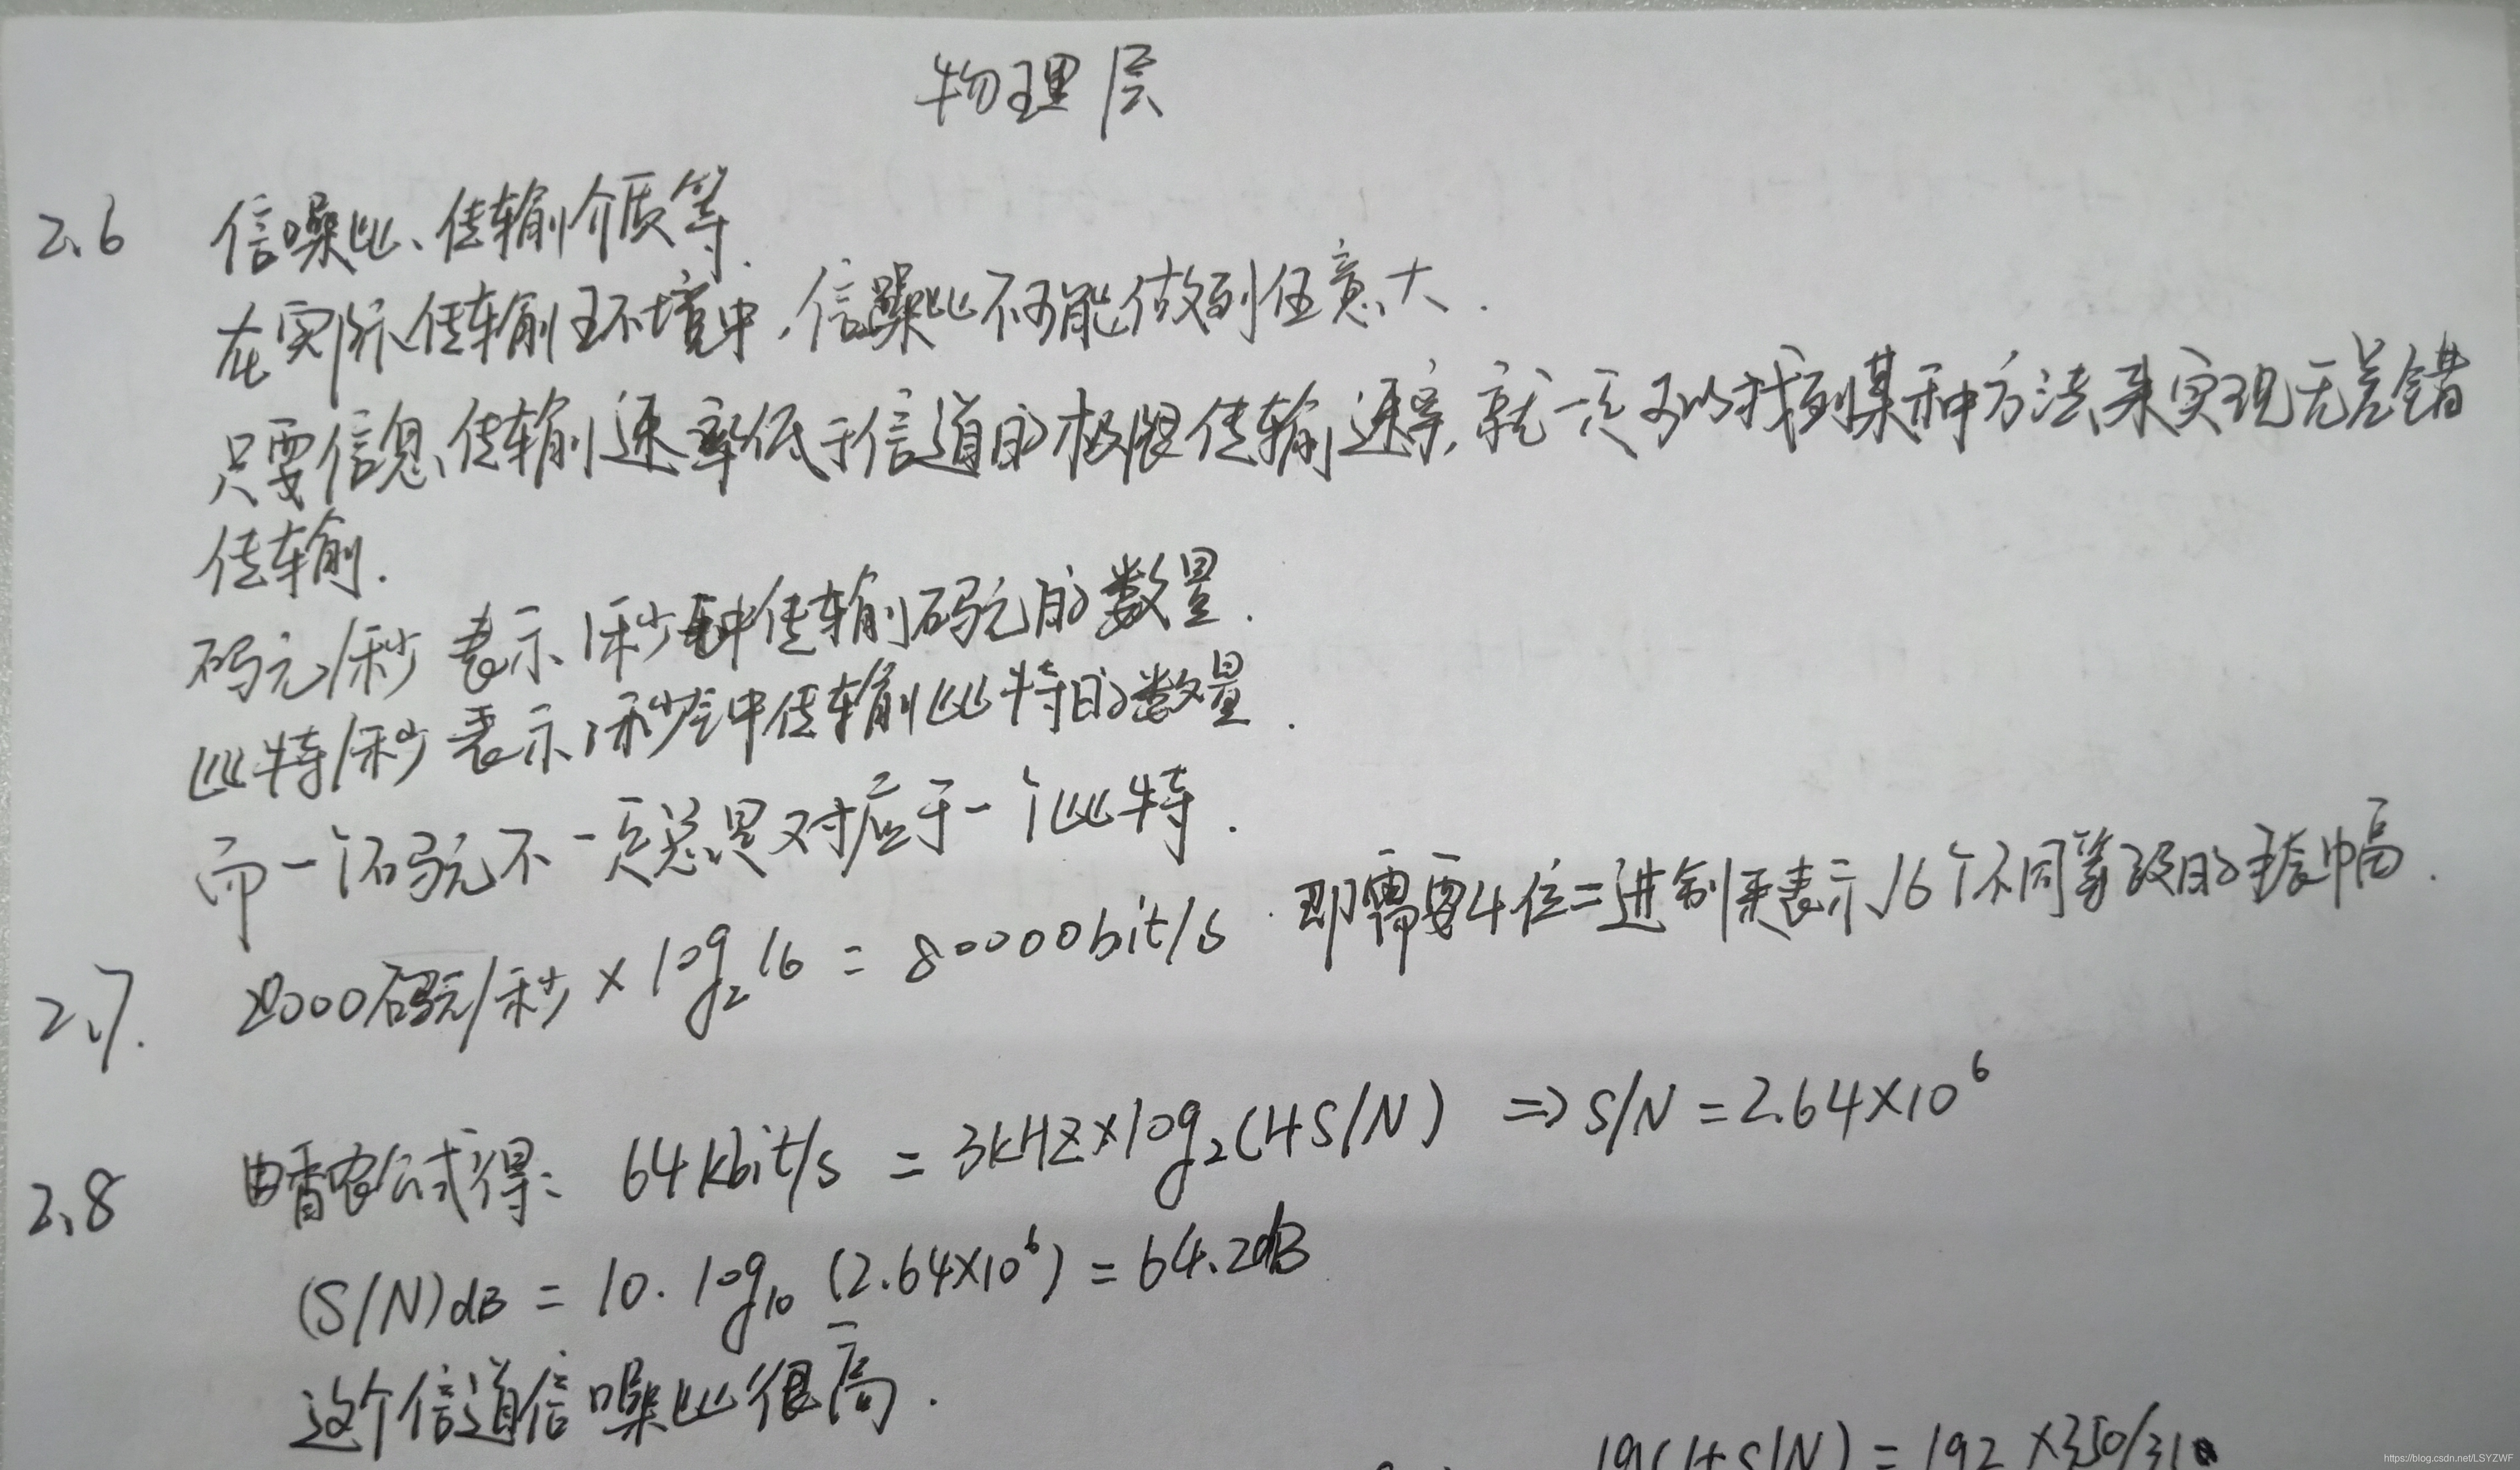 物理层
2.6 信噪比、传输介质等.
在实际传输环境中,信噪比不可能做到任意大.
只要信息传输速率低于信道的极限传输速率,就一定可以找到某种方法来实现无差错
传输.
码元/秒 表示1秒钟传输码元的数量.
比特/秒 表示1秒钟传输比特的数量.
而一个码元不一定总是对应于一个比特.
2.7. 20000码元/秒 × log₂16 = 80000bit/s. 即需要4位二进制来表示16个不同等级的振幅.
2.8 由香农公式得: 64kbit/s = 3kHZ×log₂(1+S/N) => S/N = 2.64×10⁶
(S/N)dB = 10.log₁₀ (2.64×10⁶) = 64.2dB
这个信道信噪比很高.
lg(1+S/N) = lg2 ×3.50/3.1
https://blog.csdn.net/LSYZWF